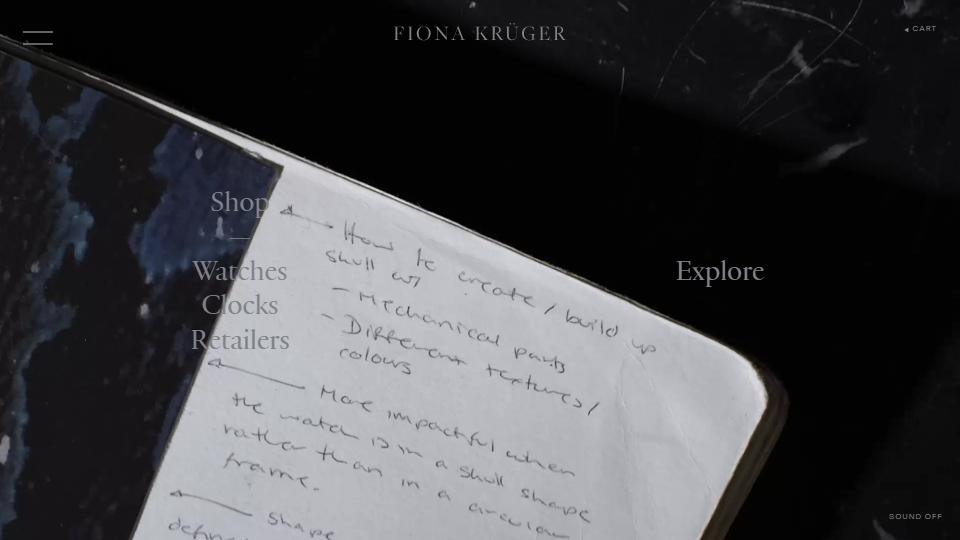 FIONA KRÜGER
CART
Shop
Watches
Clocks
Retailers
Explore
How to create / build up
skull w/
- Mechanical parts
- Different textures/
colours
More impactful when
the watch is in a skull shape
rather than in a circular
frame.
shape
SOUND OFF